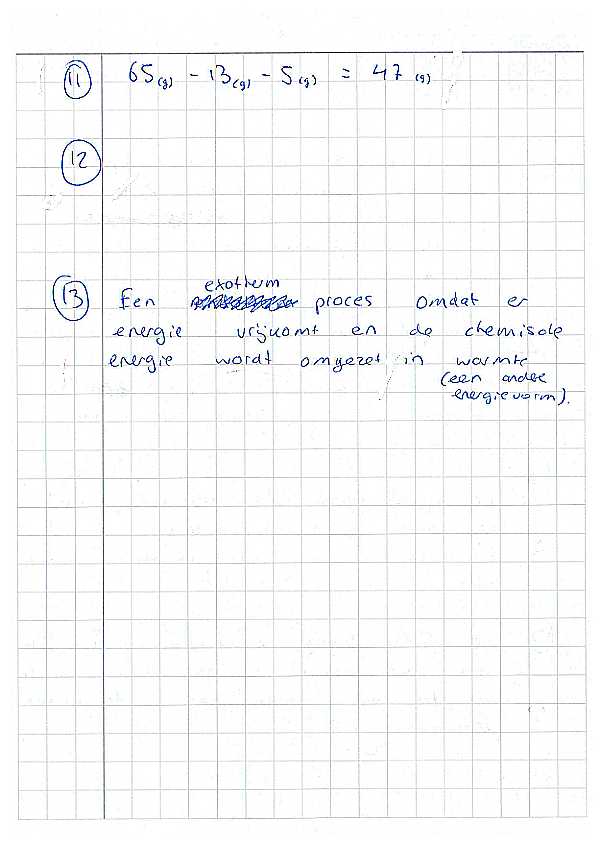 11 65(g) - 13(g) - 5(g) = 47 (g)
12
exotherm
13 Een proces omdat er
energie vrijkomt en de chemische
energie wordt omgezet in warmte
(een andere
energievorm).